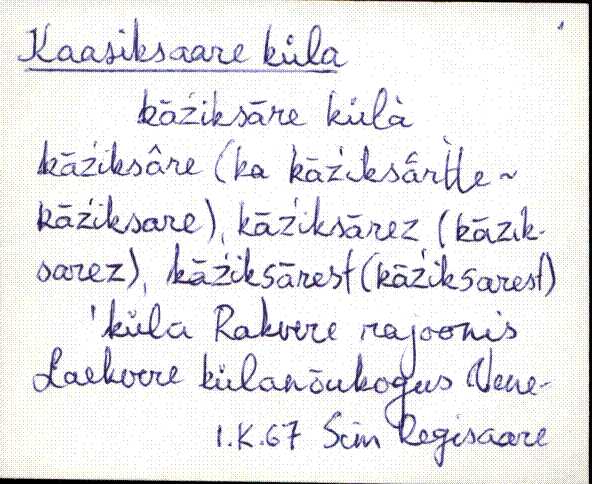 Kaasiksaare küla
kāźiksāre külà
kāźiksâre (ka kāźiksâr̀tle ~
kāźiksare), kāźiksārez (kāzik-
sarez), kāźiksārest (kāźiksarest)
'küla Rakvere rajoonis
Laekvere külanõukogus Vene-
1.K.67 Siim Regisaare